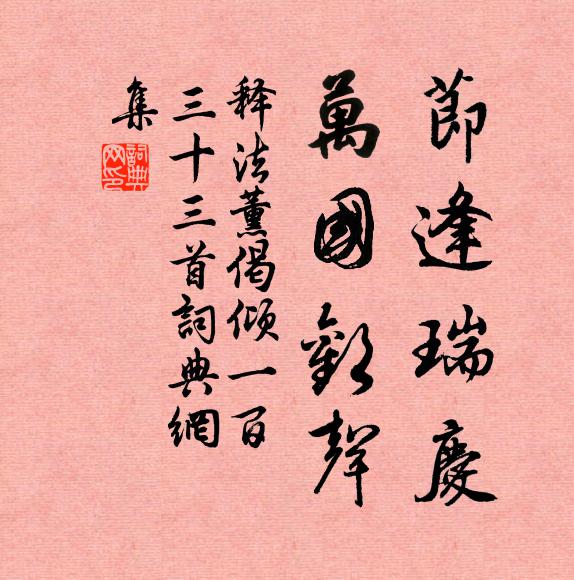 節逢瑞慶
萬國歡聲
释法薰偈倾一百
三十三首詞典網
集
詞典
网印